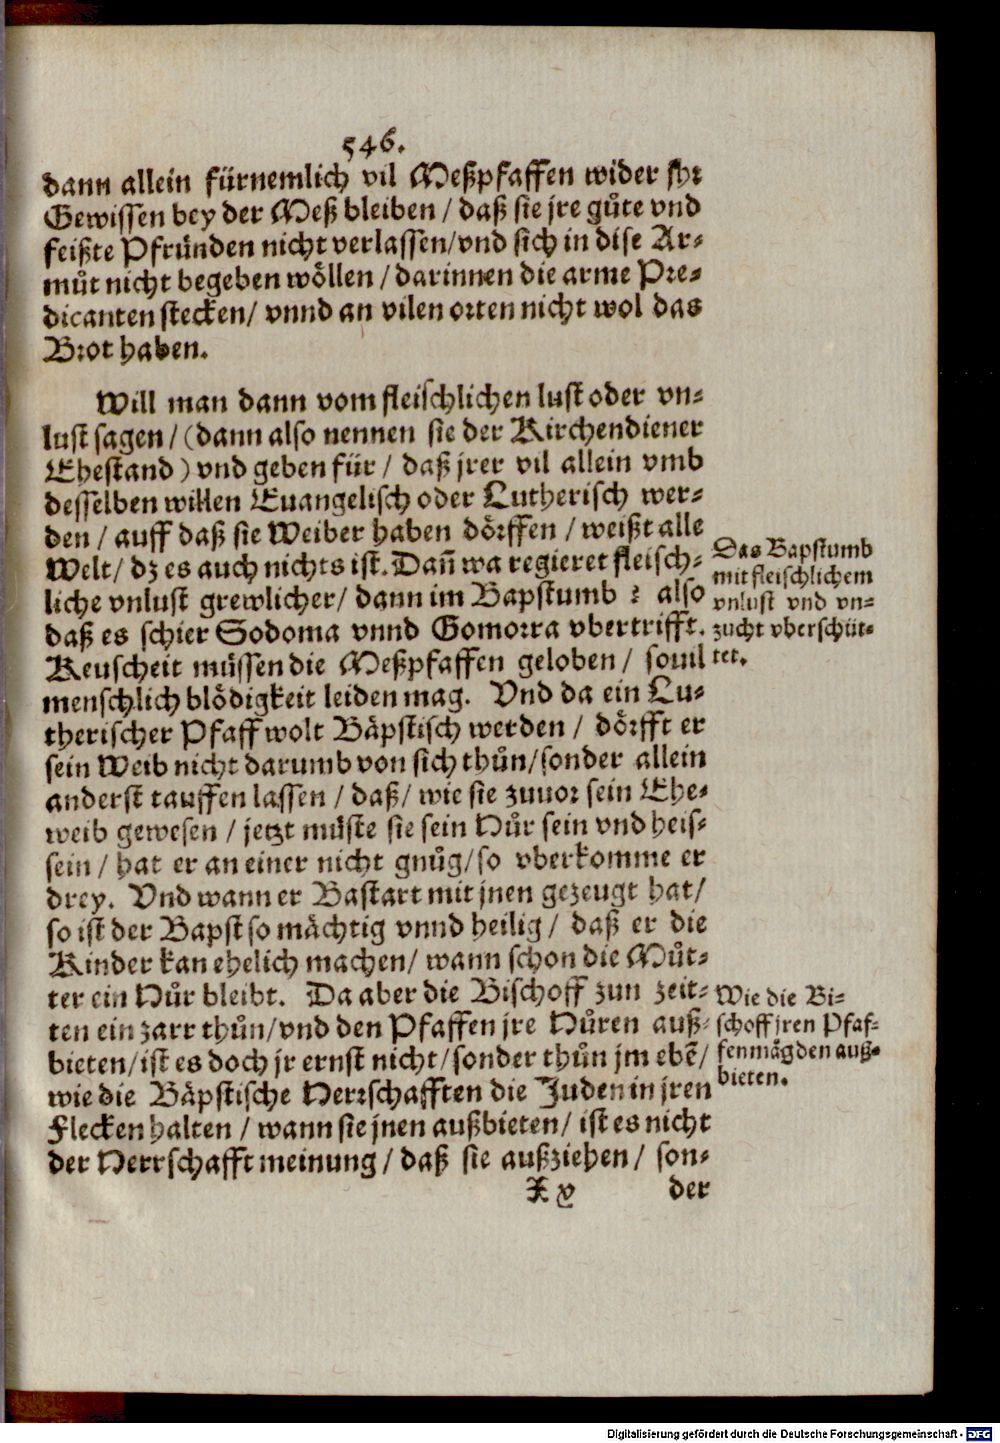 546.
dann allein fürnemlich vil Meßpfaffen wider jhr
Gewissen bey der Meß bleiben / daß sie jre gůte vnd
feißte Pfründen nicht verlassen/vnd sich in dise Ar-
můt nicht begeben wöllen / darinnen die arme Pre-
dicanten stecken/ vnnd an vilen orten nicht wol das
Brot haben.
Will man dann vom fleischlichen lust oder vn-
lust sagen / (dann also nennen sie der Kirchendiener
Ehestand) vnd geben für / daß jrer vil allein vmb
desselben willen Euangelisch oder Lutherisch wer-
den / auff daß sie Weiber haben dörffen / weißt alle
Welt/ dz es auch nichts ist. Dañ wa regieret fleisch-
liche vnlust grewlicher/ dann im Bapstumb ? also
daß es schier Sodoma vnnd Gomorra vbertrifft.
Das Bapstumb
mit fleischlichem
vnlust vnd vn-
zucht vberschüt-
tet.
Keuscheit müssen die Meßpfaffen geloben / souil
menschlich blödigkeit leiden mag. Vnd da ein Lu-
therischer Pfaff wolt Bäpstisch werden / dörfft er
sein Weib nicht darumb von sich thůn/sonder allein
anderst tauffen lassen / daß/ wie sie zuuor sein Ehe-
weib gewesen / jetzt müste sie sein Hůr sein vnd heis-
sein / hat er an einer nicht gnůg/so vberkomme er
drey. Vnd wann er Bastart mit jnen gezeugt hat/
so ist der Bapst so mächtig vnnd heilig / daß er die
Kinder kan ehelich machen/ wann schon die Můt-
ter ein Hůr bleibt. Da aber die Bischoff zun zeit-
ten ein zarr thůn/vnd den Pfaffen jre Hůren auß-
bieten/ist es doch jr ernst nicht/sonder thůn jm ebē/
wie die Bäpstische Herrschafften die Juden in jren
Flecken halten / wann sie jnen außbieten/ ist es nicht
der Herrschafft meinung / daß sie außziehen / son-
Wie die Bi-
schoff jren Pfaf-
fenmägden auß-
bieten.
X v der
Digitalisierung gefördert durch die Deutsche Forschungsgemeinschaft - DFG